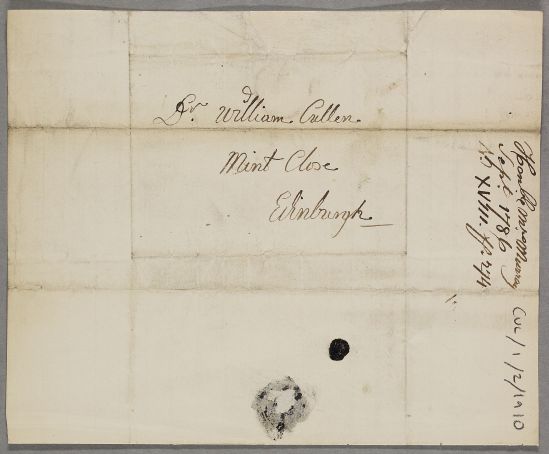 Dr. William Cullen
Mint Close
Edinburgh
Honble Mrs Murray
Sept. 1786
No XVIII. p. 274
CUL/1/2/1910